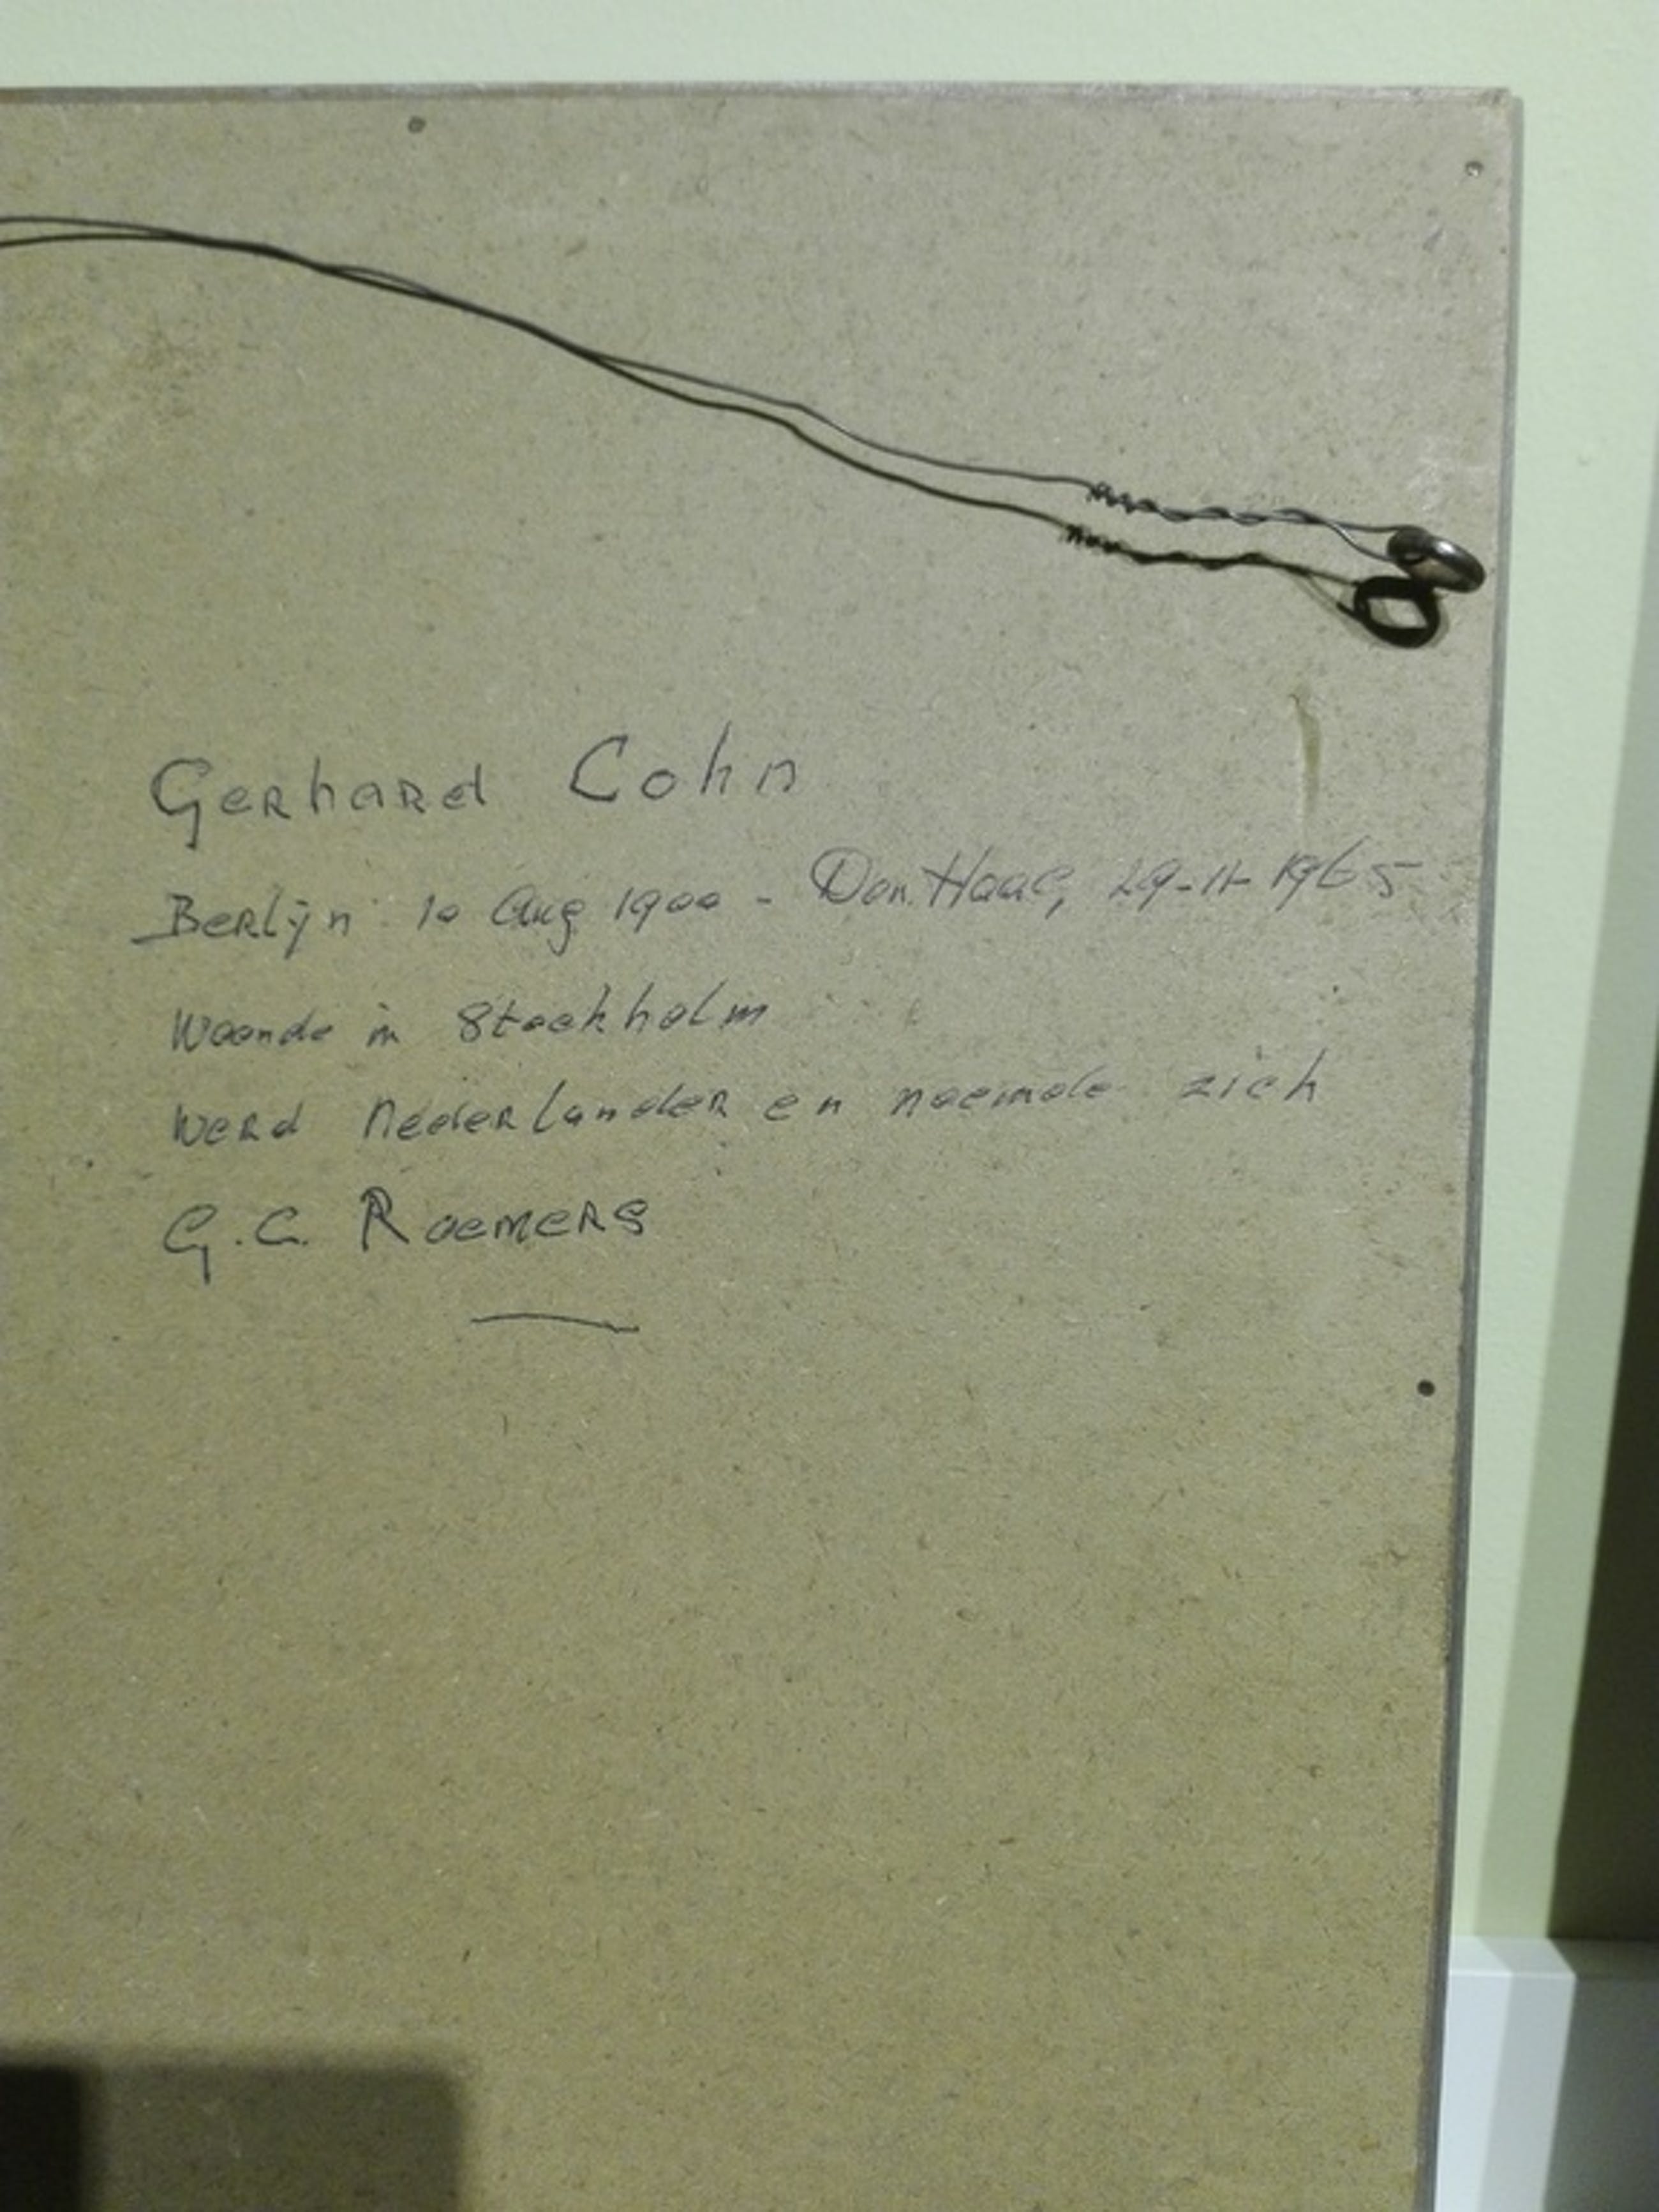 Gerhard Cohn
Berlijn 10 Aug 1900 - Den Haag, 29-11-1965
Woonde in Stockholm
werd Nederlander en noemde zich
G.C. Roemers